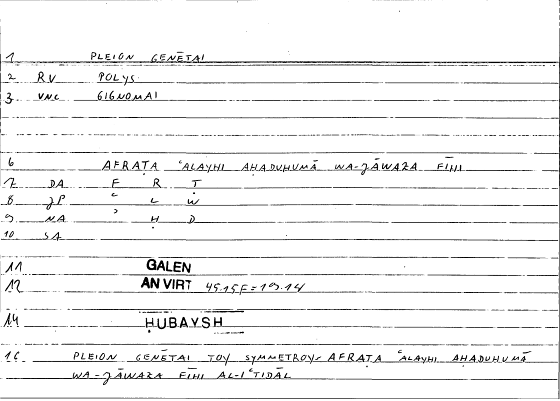 1 PLEION GENĒTAI
2 RV POLYS
3 VNC GIGNOMAI
6 AFRAṬA ʿALAYHI AḤADUHUMĀ WA-ǦĀWAZA FĪHI
7 DA F R Ṭ
8 JP ʿ L W
9 NA ʾ Ḥ D
10 SA
11 GALEN
12 AN VIRT 45.15F = 109.14
14 HUBAYSH
16 PLEION GENĒTAI TOY SYMMETROY - AFRAṬA ʿALAYHI AḤADUHUMĀ
WA-ǦĀWAZA FĪHI AL-IʿTIDĀL